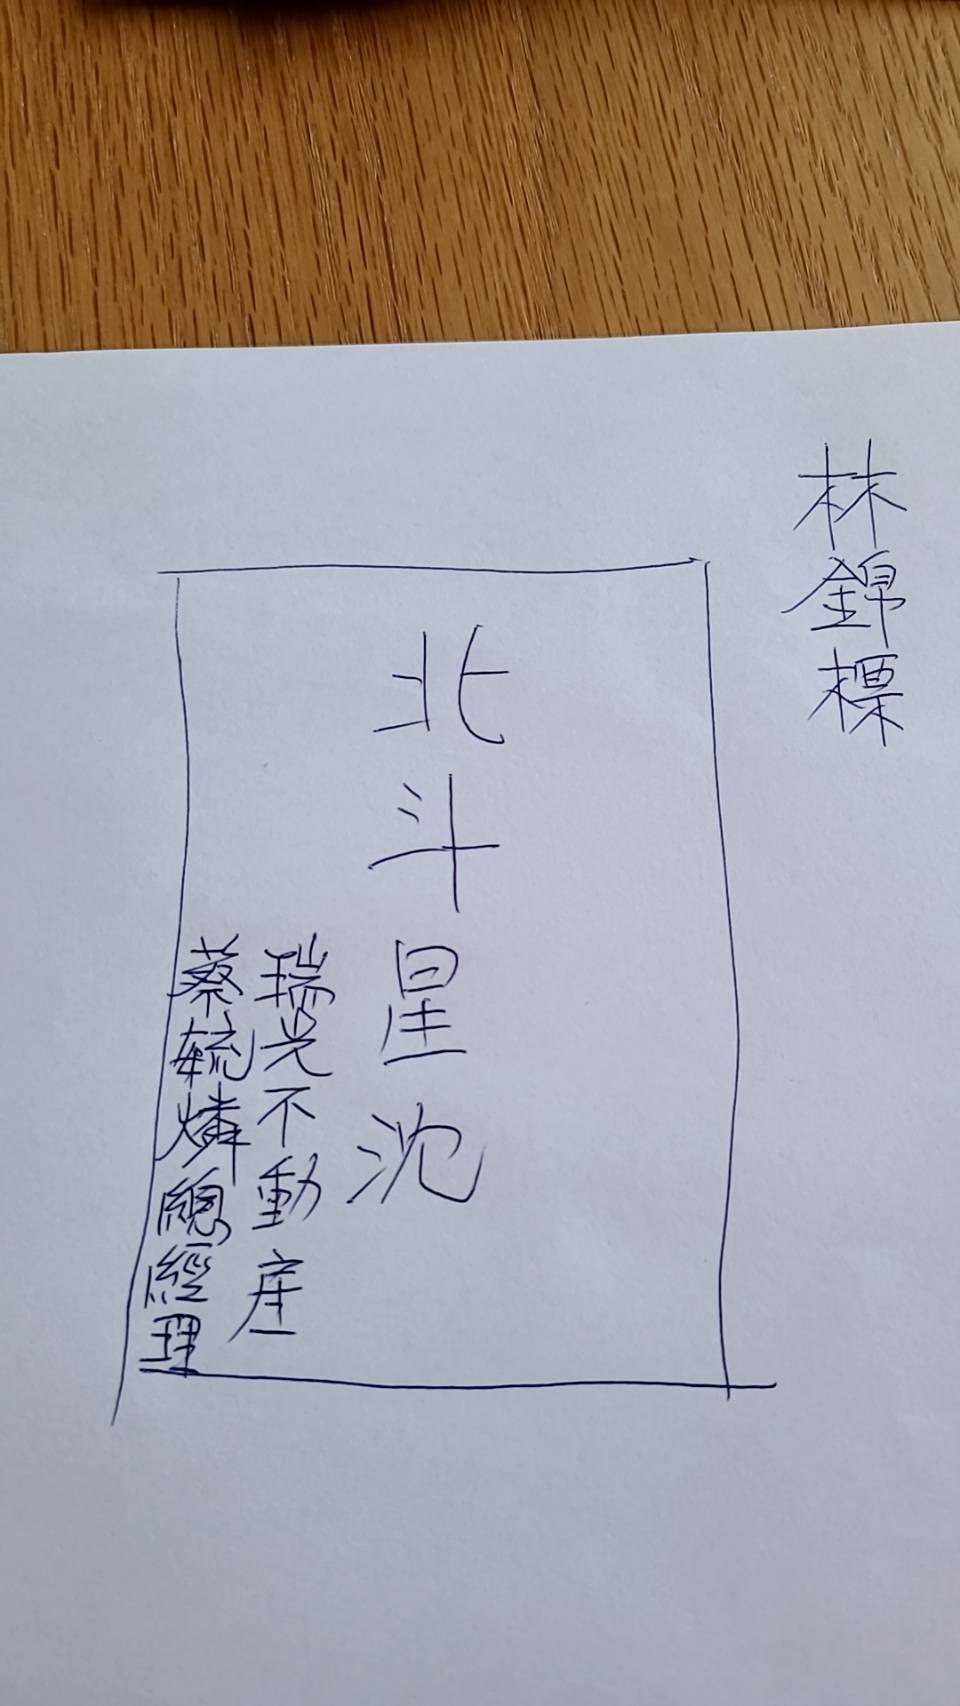 林錦標
北斗星沈
瑞光不動産
蔡毓燐總經理